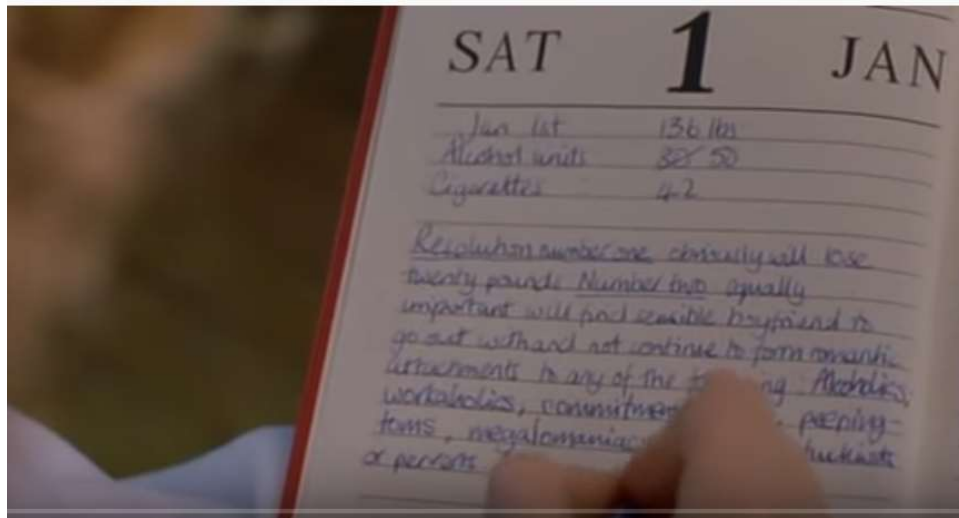 SAT 1 JAN
Jan 1st 136 lbs
Alcohol units 50
Cigarettes 42
Resolution number one obviously will lose
twenty pounds Number two equally
important will find sensible boyfriend to
go out with and not continue to form romantic
attachments to any of the ing: Alcoholics,
workaholics, peeping-
toms,
or perverts